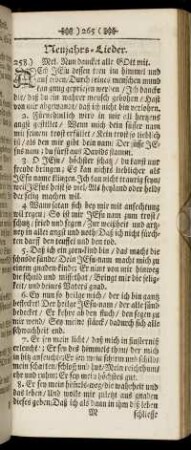 265
Neujahrs-Lieder.
258.) Mel. Nun dancket alle GOtt mit.
Ach JEsu dessen treu im himmel und
auf erden, Durch keines menschen mund
kan gnug gepriesen werden, Ich dancke
dir, daß du ein wahrer mensch gebohren, Hast
von mir abgewandt, daß ich nicht bin verlohren.
2. Fürnemlich wird in mir all hertzens
angst gestillet, Wenn mich dein süsser nam
mit seinem trost erfüllet, Kein trost so lieblich
ist, als uns gibt dein nam, Der süsse JE-
sus nam, Du fürst aus Davids stamm.
3. O JEsu, höchster schatz, du kanst nur
freude bringen, Es kan nichts lieblicher als
JEsu name klingen, Ich kan nicht traurig seyn,
weil JEsus heist so viel, Als heyland oder held,
der selig machen wil.
4. Wann satan sich bey mir mit anfechtung
wil regen, So ist mir JEsu nam zum trost,
schutz, fried und segen, Zur weißheit und artz-
ney in aller angst und noth, Daß ich nicht fürchten
darf den teuffel und den tod.
5. Daß ich ein zorn-kind bin, das macht die
schnöde sünde, Dein JEsu-nam macht mich zu
einem gnaden-kinde, Er nimt von mir hinweg
die schuld und missethat, Bringt mir die selig-
keit, und deines Vaters gnad.
6. Ey nun so heilge mich, der ich bin gantz
beflecket, Der heilge JEsu-nam, der alle sünd
bedecket, Er kehre ab den fluch, den segen zu
mir wend, Sey meine stärck, dadurch sich alle
schwachheit end.
7. Er sey mein licht, das mich in finsterniß
erleucht, Er sey des himmels thau, der mich
in hitz anfeuchte, Er sey mein schirm und schild,
mein schatten, schloß und hut, Mein reichthum,
ehr und ruhm, Er sey mein höchstes gut.
8. Er sey mein himmels-weg, die wahrheit und
das leben, Und wolle mir zuletzt aus gnaden
dieses geben, Daß ich alsdann in ihm diß leben
M schliesse